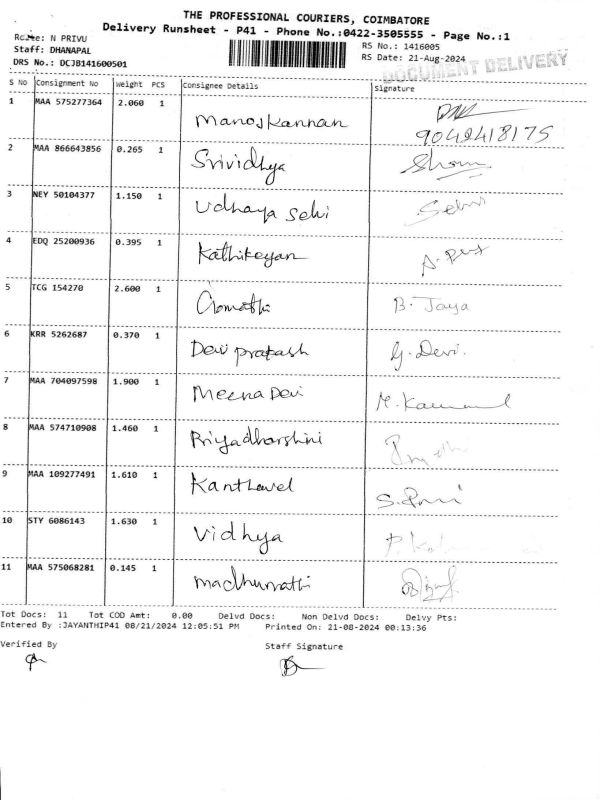 THE PROFESSIONAL COURIERS, COIMBATORE
Delivery Runsheet - P41 - Phone No.:0422-3505555 - Page No.:1
N PRIVU RS No.: 1416005
Staff: DHANAPAL RS Date: 21-Aug-2024
DRS No.: DCJB141600501 DOCUMENT DELIVERY
S No Consignment No Weight PCS Consignee Details Signature
1 MAA 575277364 2.060 1 Manoj Kannan 9042418175
2 MAA 866643856 0.265 1 Srividhya
3 NEY 50104377 1.150 1 Udhaya Selvi Selvi
4 EDQ 25200936 0.395 1 Kathikeyan
5 TCG 154270 2.600 1 Gomathi B. Jaya
6 KRR 5262687 0.370 1 Devi prakash G. Devi.
7 MAA 704097598 1.900 1 Meena Devi
8 MAA 574710908 1.460 1 Priyadharshini
9 MAA 109277491 1.610 1 Kanthavel
10 STY 6086143 1.630 1 Vidhya
11 MAA 575068281 0.145 1 madhumathi
Tot Docs: 11 Tot COD Amt: 0.00 Delvd Docs: Non Delvd Docs: Delvy Pts:
Entered By :JAYANTHIP41 08/21/2024 12:05:51 PM Printed On: 21-08-2024 00:13:36
Verified By Staff Signature